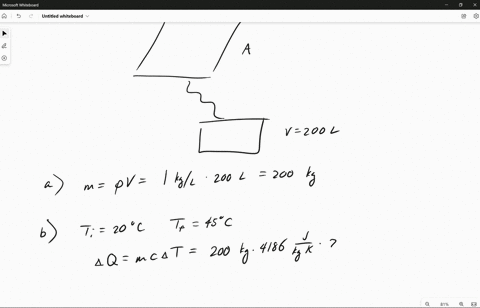 Microsoft Whiteboard
Untitled whiteboard
A
V = 200 L
a) m = ρV = 1 kg/L · 200 L = 200 kg
b) Ti = 20°C Tf = 45°C
ΔQ = mcΔT = 200 kg · 4186 J/kg K · 2
81%